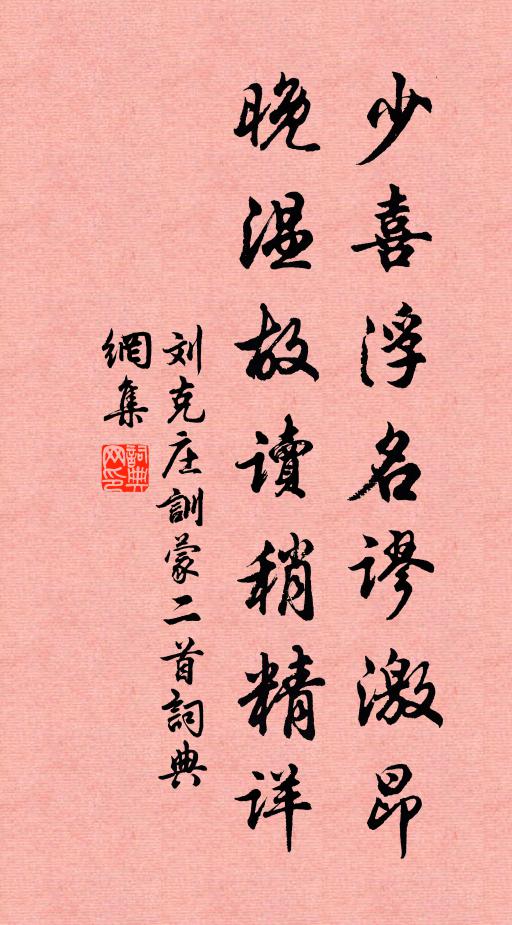 少喜浮名谬激昂
晚温故读稍精详
刘克庄訓蒙二首詞典
網集
詞典网印